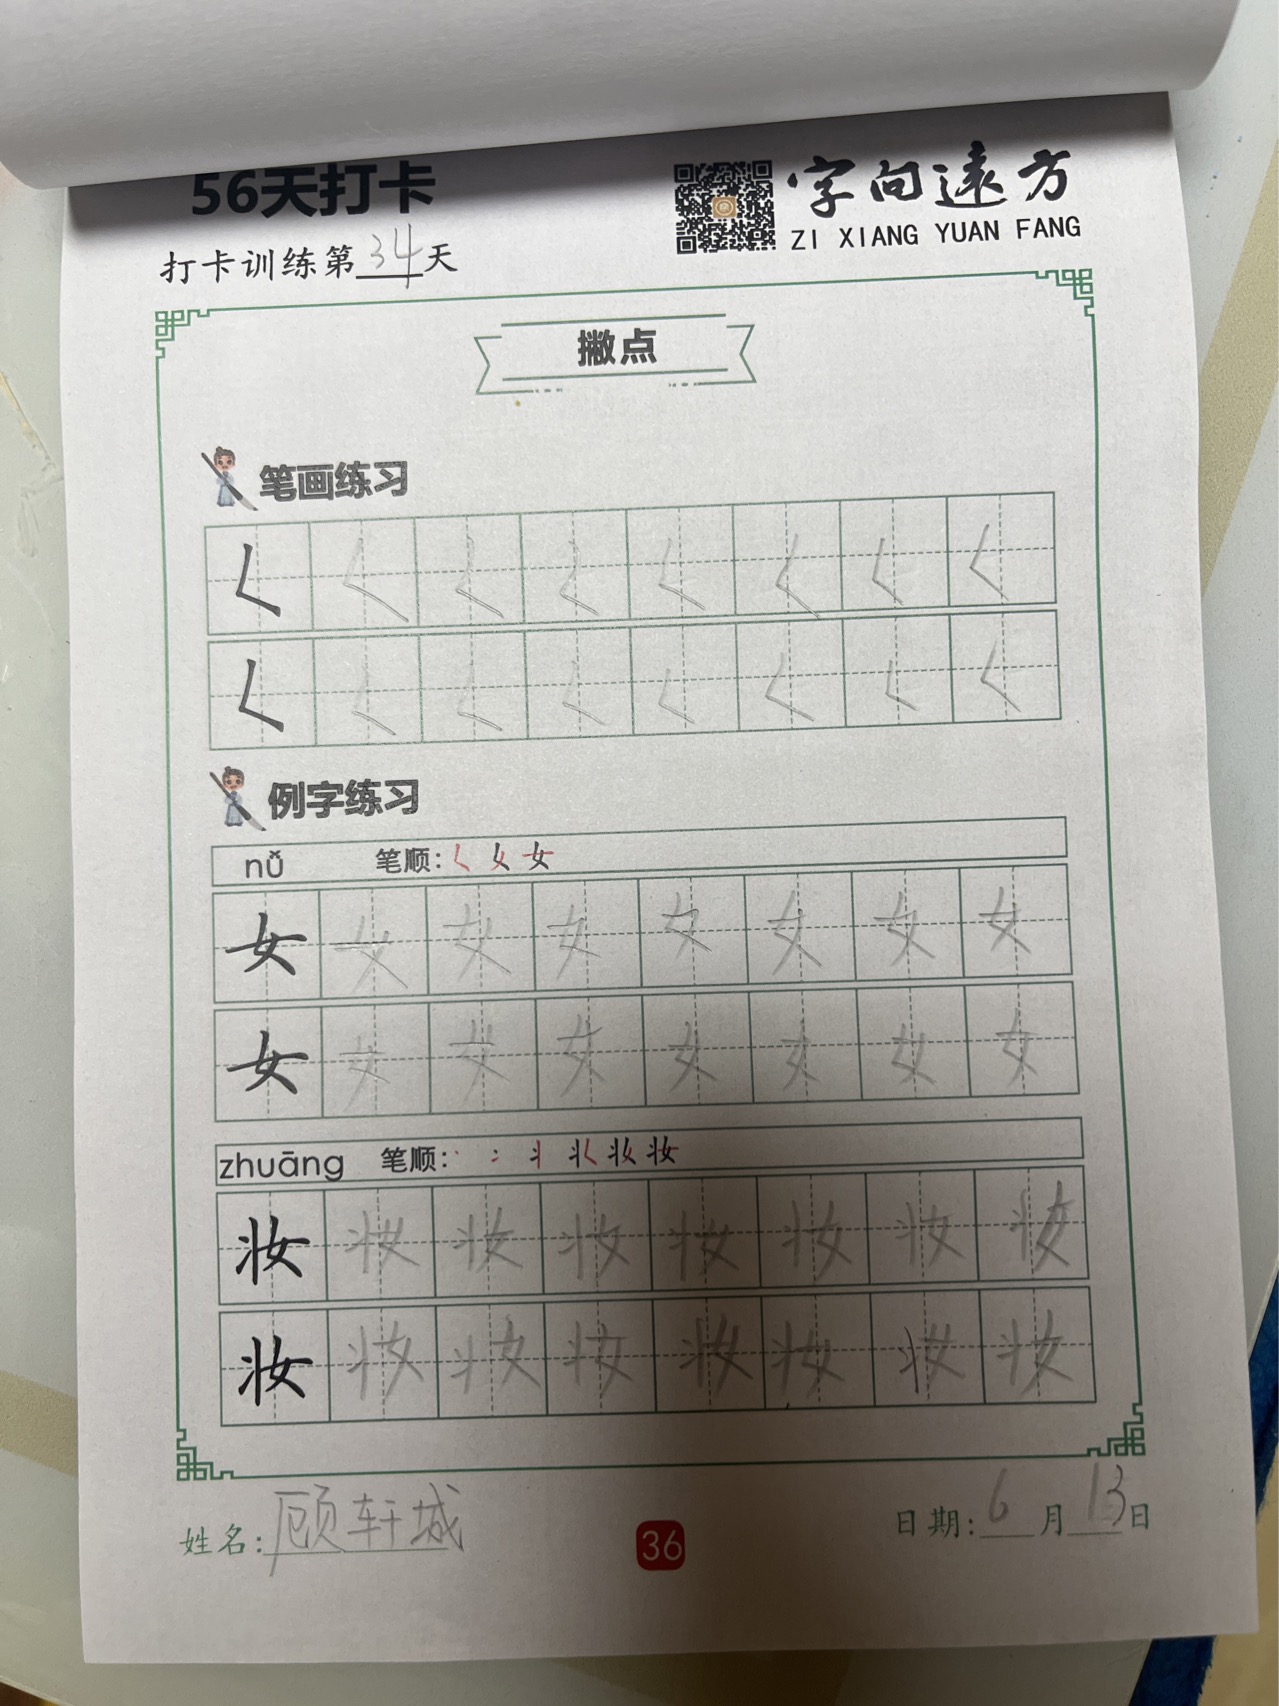 56天打卡
字向遠方
ZI XIANG YUAN FANG
打卡训练第34天
撇点
笔画练习
𡿨 𡿨 𡿨 𡿨 𡿨 𡿨 𡿨 𡿨
𡿨 𡿨 𡿨 𡿨 𡿨 𡿨 𡿨 𡿨
例字练习
nǚ 笔顺: 𡿨 女
女 女 女 女 女 女 女 女
女 女 女 女 女 女 女 女
zhuāng 笔顺: 丬 妆
妆 妆 妆 妆 妆 妆 妆 妆
妆 妆 妆 妆 妆 妆 妆 妆
姓名: 顾轩城
36
日期: 6月13日